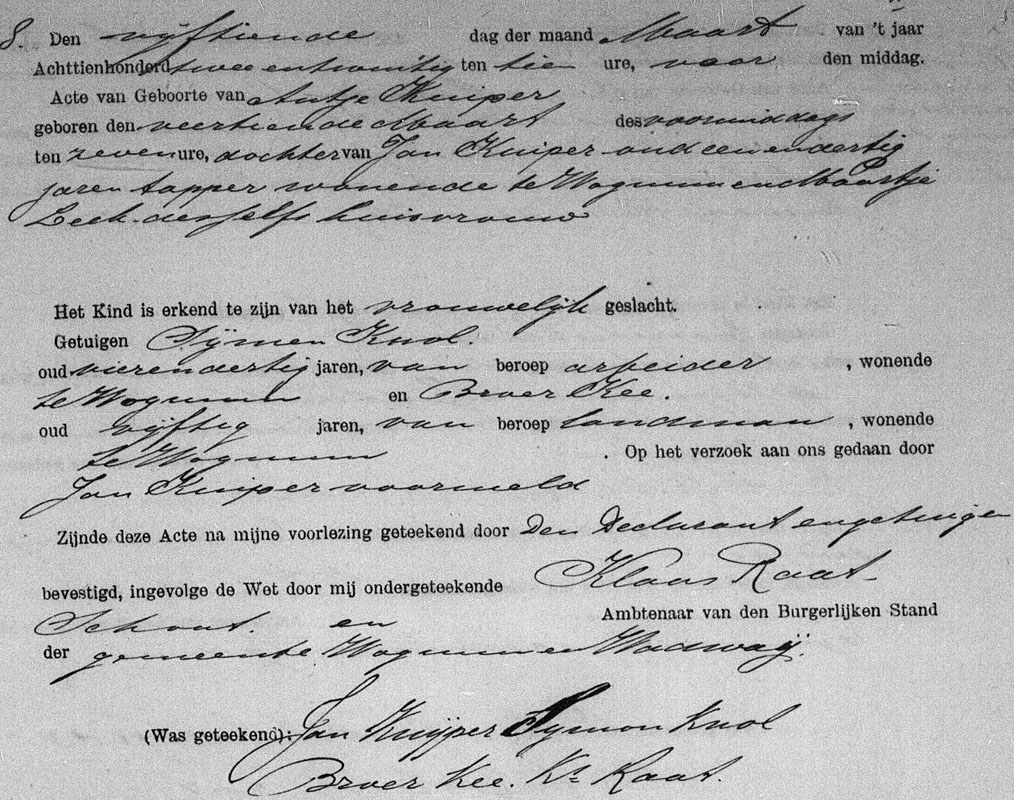 8. Den vijftiende dag der maand Maart van 't jaar
Achttienhonderd twee en twintig ten tien ure, voor den middag.
Acte van Geboorte van Antje Kuiper
geboren den veertiende Maart des voormiddags
ten zeven ure, dochter van Jan Kuiper oud een en dertig
jaren tapper wonende te Wognum en Maartje
Leek deszelfs huisvrouw
Het Kind is erkend te zijn van het vrouwelijk geslacht.
Getuigen Sijmen Knol.
oud vierendertig jaren, van beroep arbeider, wonende
te Wognum en Broer Kee.
oud vijftig jaren, van beroep landman, wonende
te Wognum. Op het verzoek aan ons gedaan door
Jan Kuiper voormeld
Zijnde deze Acte na mijne voorlezing geteekend door den Declarant en getuigen
bevestigd, ingevolge de Wet door mij ondergeteekende Klaas Raat
Schout en Ambtenaar van den Burgerlijken Stand
der gemeente Wognum en Wadway.
(Was geteekend): Jan Kuijper Symon Knol
Broer Kee. Ks Raat.